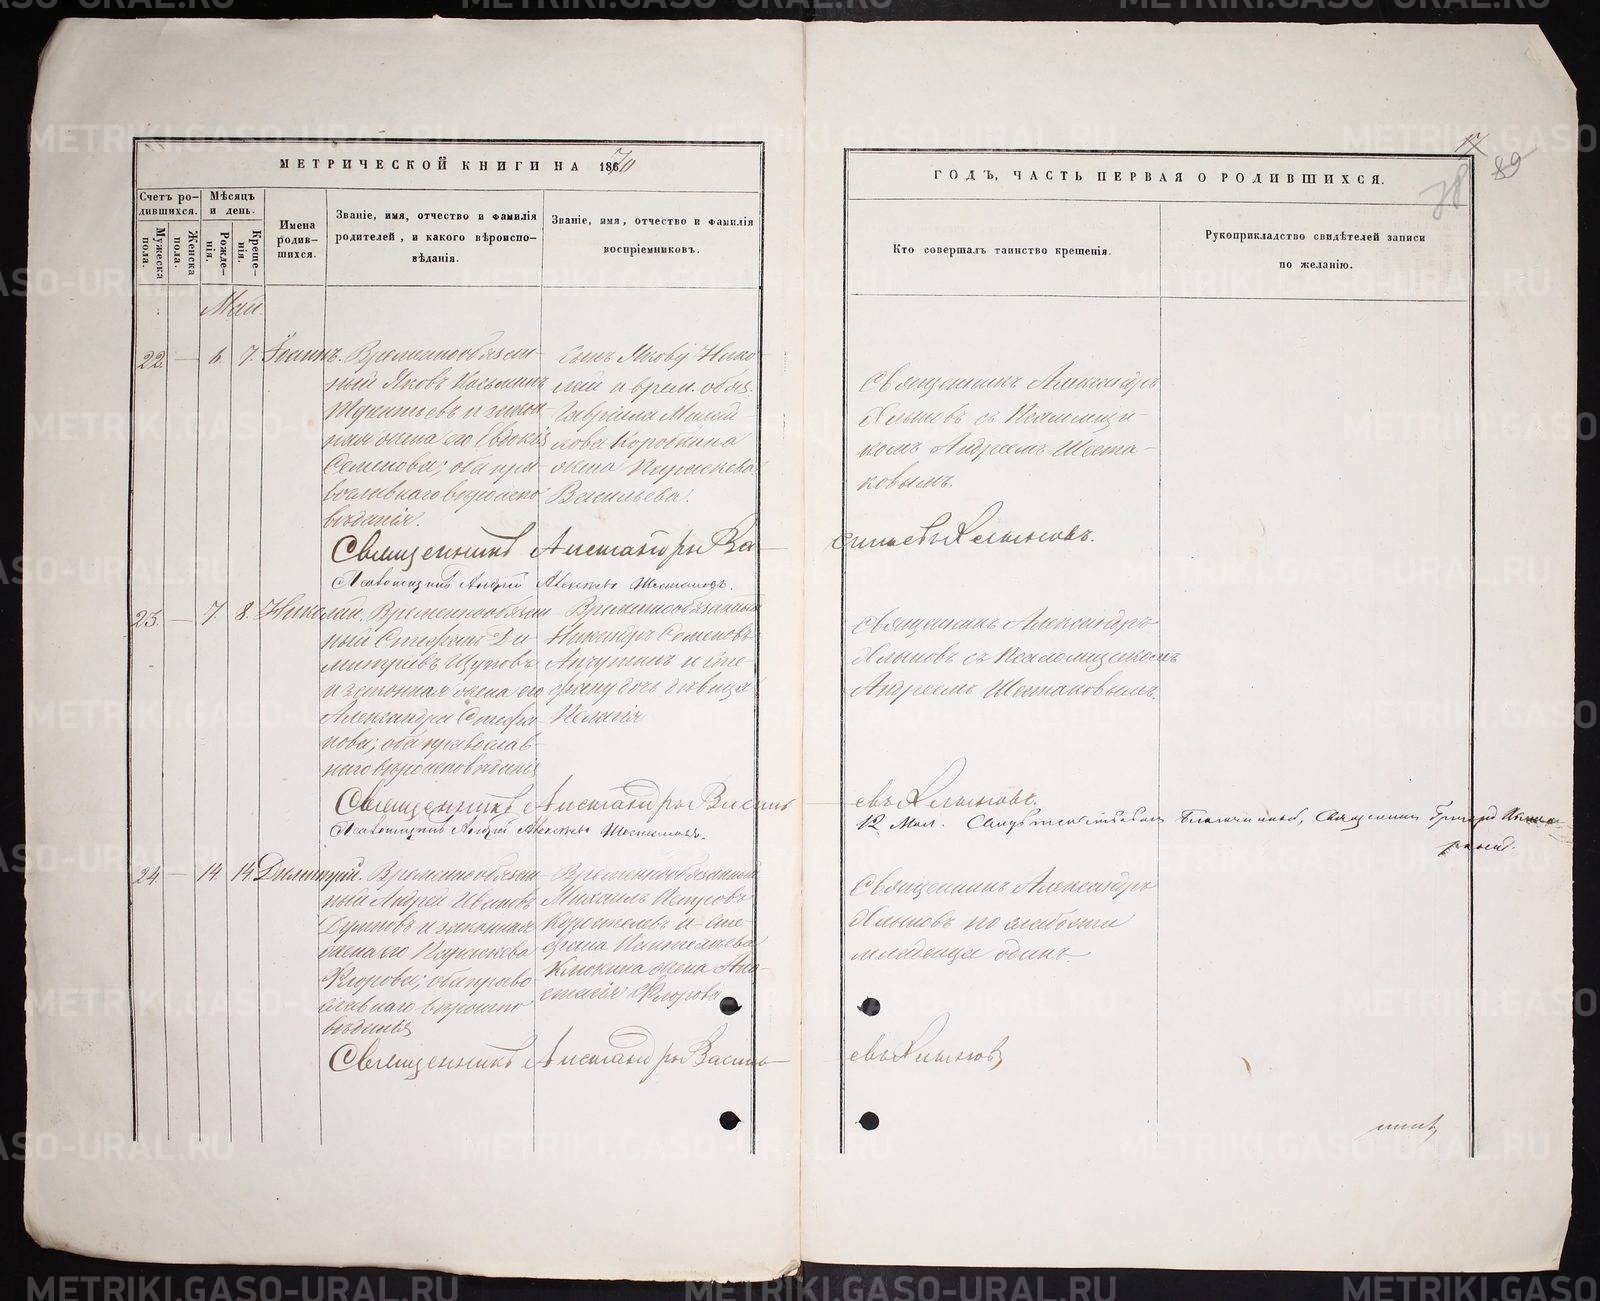 МЕТРИЧЕСКОЙ КНИГИ НА 1870
ГОДЪ, ЧАСТЬ ПЕРВАЯ О РОДИВШИХСЯ.
89
Счетъ родившихся.
Мужеска пола.
Женска пола.
Мѣсяцъ и день.
Рожденія.
Крещенія.
Имена родившихся.
Званіе, имя, отчество и фамилія
родителей, и какого вѣроиспо-
вѣданія.
Званіе, имя, отчество и фамилія
воспріемниковъ.
Кто совершалъ таинство крещенія.
Рукоприкладство свидѣтелей записи
по желанію.
Май
22. — 6. 7. Іоаннъ.
Временнообязан-
ный Яковъ
и закон-
ная жена его Евдокія
Семенова; оба пра-
вославнаго вѣроиспо-
вѣданія.
сынъ Нико-
лай и врем. обяз.
Гавріила Михай-
лова Коровкина
жена Параскева
Васильева.
Священникъ Александръ
Хлыновъ съ Псаломщи-
комъ Андреемъ Шеста-
ковымъ.
Священникъ Александръ Ва-
сильевъ Хлыновъ.
Псаломщикъ Андрей Алексѣевъ Шестаковъ.
23. — 7. 8. Николай.
Временнообязан-
ный Стефанъ Ди-
митріевъ Щуповъ
и законная жена его
Александра Стефа-
нова; оба православ-
наго вѣроисповѣданія
Временнообязанный
Никандръ Семеновъ
и Сте-
фану дочь дѣвица
Пелагія
Священникъ Александръ
Хлыновъ съ Псаломщикомъ
Андреемъ Шестаковымъ.
Священникъ Александръ Василь-
евъ Хлыновъ.
Псаломщикъ Андрей Алексѣевъ Шестаковъ.
12 Мая. Свидѣтельствовалъ Благочинный, Священникъ Григорій
24 — 14. 14. Димитрій.
Временнообязан-
ный Андрей Ивановъ
и законная
жена его Параскева
Флорова; оба право-
славнаго вѣроиспо-
вѣданія
Временнообязанный
Михаилъ Петровъ
и Сте-
фана Пантелѣева
Клюкина жена Ана-
стасія Флорова
Священникъ Александръ
Хлыновъ по слабости
младенца одинъ.
Священникъ Александръ Василь-
евъ Хлыновъ
METRIKI.GASO-URAL.RU